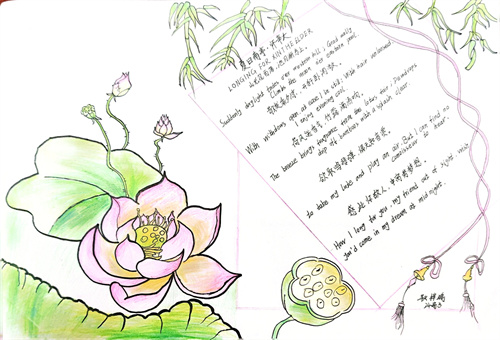 夏日南亭怀辛大
LONGING FOR XIN THE ELDER
山光忽西落,池月渐东上。
Suddenly daylight fades over mountain
Climb the moon
散发乘夕凉,开轩卧闲敞。
With windows open at ease I lie still. With hair unloosened
I enjoy evening cool.
荷风送香气,竹露滴清响。
The breeze brings fragrance from the lotus
drip off bamboos with a splash clear.
欲取鸣琴弹,恨无知音赏。
to take my lute and play an air. But I can find no
to hear.
感此怀故人,中宵劳梦想。
How I long for you, my friend out of sight! Wish
you'd come in my dream at mid-night.